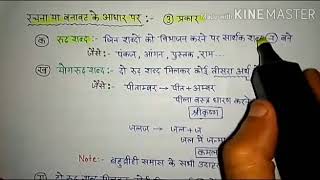 Made with KINEMASTER
रचना या बनावट के आधार पर :- ③ प्रकार
क रूढ़ शब्द:- जिन शब्दों को विभाजन करने पर सार्थक शब्द न बने
जैसे:- पंकज, आंगन, पुस्तक, राम...
ख योगरूढ़ शब्द:- दो रूढ़ शब्द मिलकर कोई तीसरा अर्थ
जैसे:- पीताम्बर → पीत + अम्बर
पीला वस्त्र धारण करने
श्रीकृष्ण
जलज → जल + ज
जल में जन्मा
कमल
Note:- बहुव्रीहि समास के सभी उदाहरण
ग दो रूढ़ शब्द मिलकर